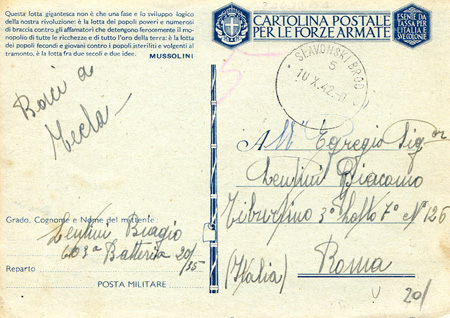 Questa lotta gigantesca non è che una fase e lo sviluppo logico
della nostra rivoluzione: è la lotta dei popoli poveri e numerosi
di braccia contro gli affamatori che detengono ferocemente il mo-
nopolio di tutte le ricchezze e di tutto l'oro della terra: è la lotta
dei popoli fecondi e giovani contro i popoli isteriliti e volgenti al
tramonto, è la lotta fra due secoli e due idee.
MUSSOLINI
CARTOLINA POSTALE
PER LE FORZE ARMATE
ESENTE DA
TASSA PER
L'ITALIA E
SVE COLONIE
SLAVONSKI BROD
5
10 X. 42
Baci a
Tecla
All' Egregio Sig.or
Lentini Giacomo
Tiburtino 3° Lotto 7° N° 126
Roma
(Italia)
20/
Grado, Cognome e Nome del mittente
Lentini Biagio
603a Batteria 20/35
Reparto
POSTA MILITARE